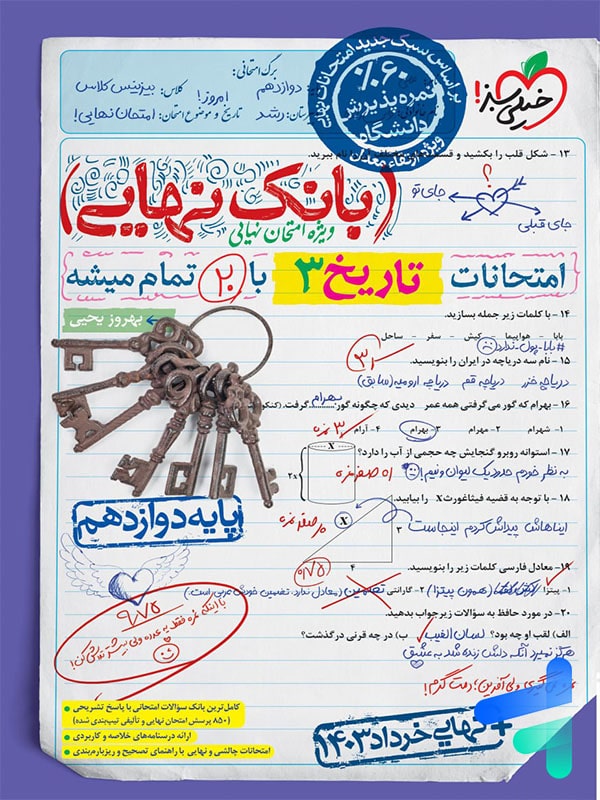 خیلی سبز!
براساس سبک جدید امتحانات نهایی
۶۰٪
نمره پذیرش
دانشگاه
ویژه ارتقاء معدل
برگ امتحانی:
دوازدهم
کلاس: بیزینس کلاس
امروز!
رشد
تاریخ و موضوع امتحان: امتحان نهایی!
۱۳ - شکل قلب را بکشید و
نام ببرید.
؟
جای تو
جای قبلی
(بانک نهایی)
ویژه امتحان نهایی
امتحانات تاریخ ۳ با ۲۰ تمام میشه
بهروز یحیی
۱۴ - با کلمات زیر جمله بسازید.
بابا - هواپیما - کیش - سفر - ساحل
#بابا-پول-ندارد
۱۵ - نام سه دریاچه در ایران را بنویسید.
دریاچه خزر دریاچه قم دریاچه ارومیه (سابق)
۱۶ - بهرام که گور می گرفتی همه عمر دیدی که چگونه گور بهرام گرفت.
۱- شهرام ۲- مهرام ۳- بهرام ۴- آرام
۱۷ - استوانه روبرو گنجایش چه حجمی از آب را دارد؟
X
2X
به نظر خودم حدود یک لیوان و نیم!
۱۸ - با توجه به قضیه فیثاغورث X را بیابید.
X
۳
۴
ایناهاش پیداش کردم اینجاست
پایه دوازدهم
۰/۷۵
۱۹ - معادل فارسی کلمات زیر را بنویسید.
۱- پیتزا (همون پیتزا) ۲- گارانتی تضمین (معادل ندارد. تضمین خودش عربی است.)
۲۰ - در مورد حافظ به سؤالات زیر جواب بدهید.
الف) لقب او چه بود؟ لسان الغیب ب) در چه قرنی درگذشت؟
هرگز نمیرد آنکه دلش زنده شد به عشق
۹/۷۵
با اینکه نمره فقط یه عدده ولی بیشتر تلاش کن!
کامل‌ترین بانک سؤالات امتحانی با پاسخ تشریحی
(۸۵۰ پرسش امتحان نهایی و تألیفی تیپ‌بندی شده)
ارائه درسنامه‌های خلاصه و کاربردی
امتحانات چالشی و نهایی با راهنمای تصحیح و ریزبارم‌بندی
+ نهایی خرداد ۱۴۰۳